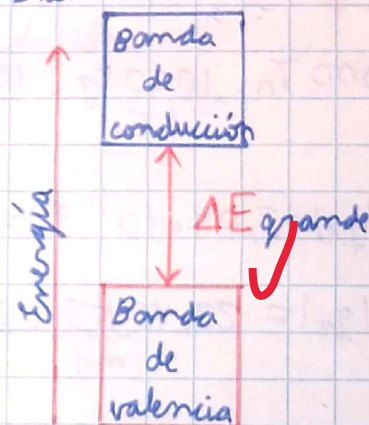 Banda
de
conducción
Energía
ΔE grande
Banda
de
valencia